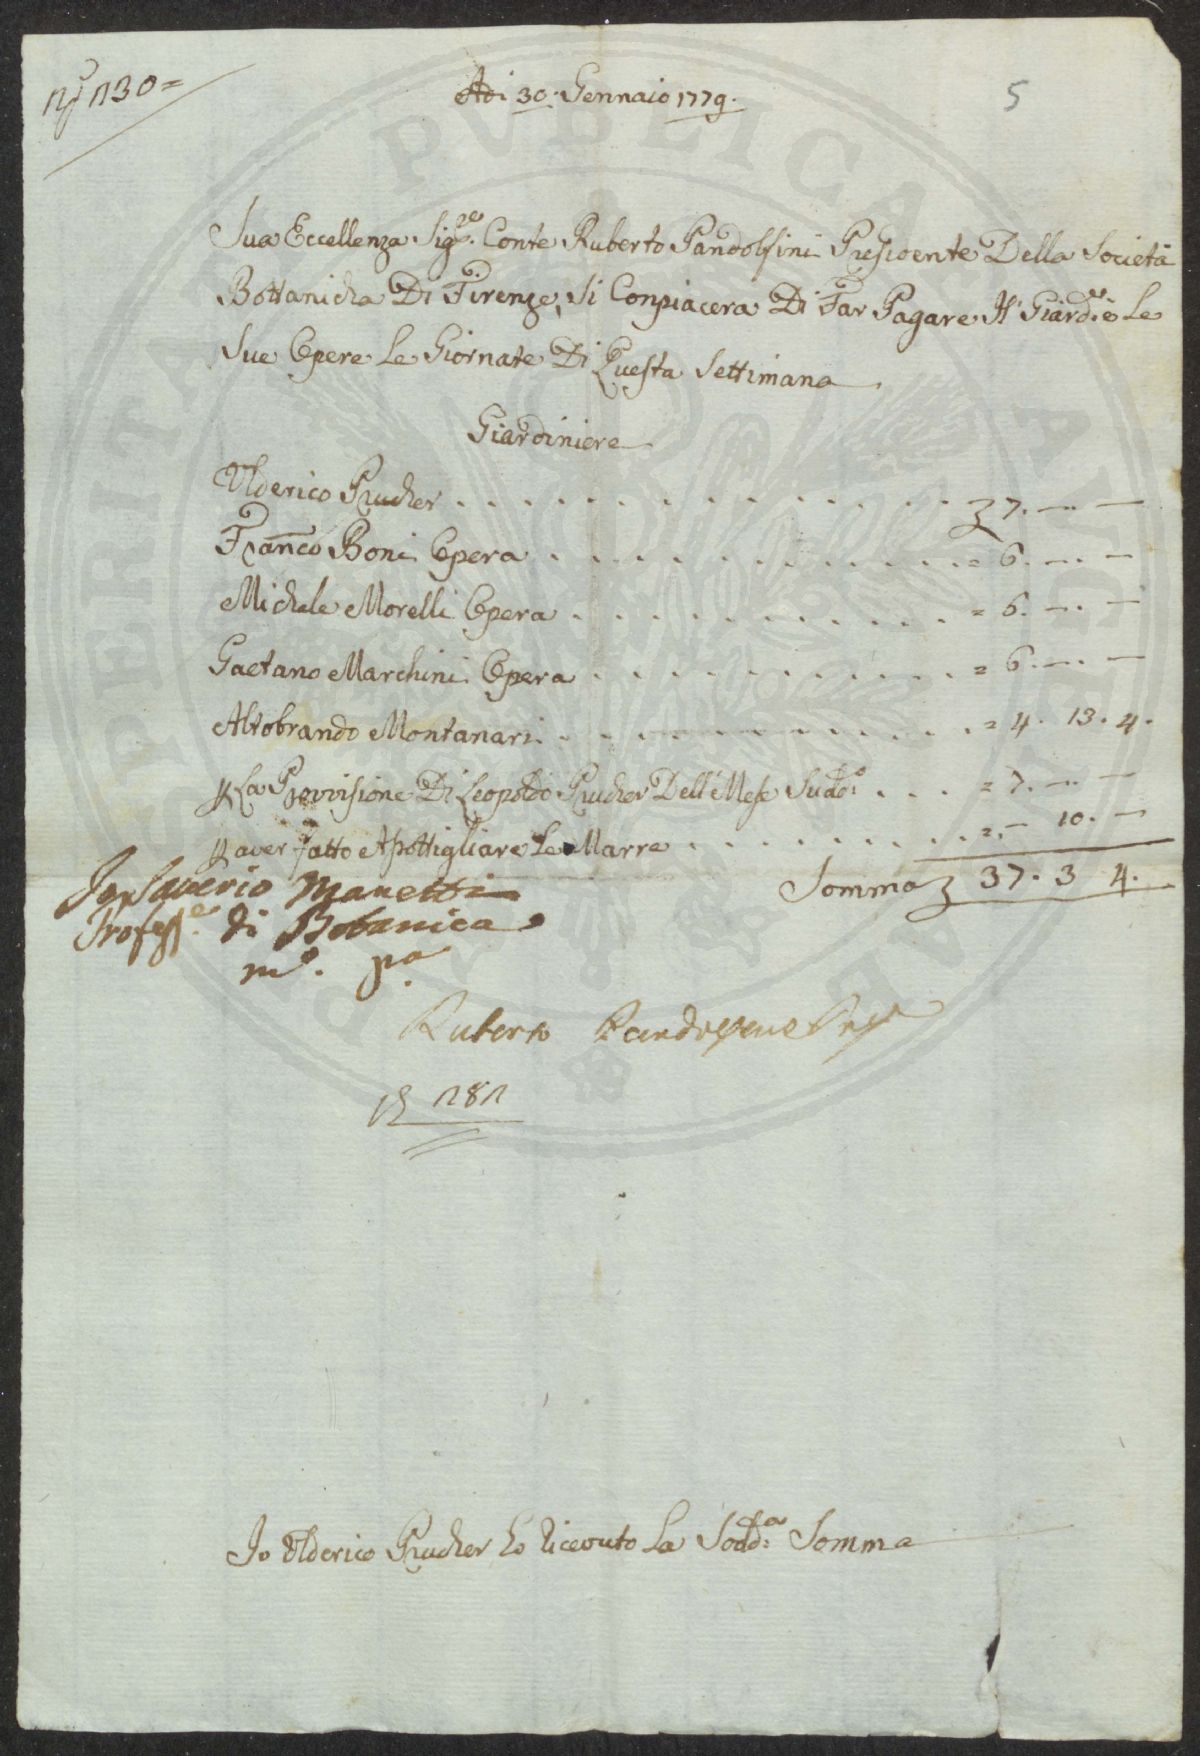 N.º 130=
Adi 30. Gennaio 1779.
5
Sua Eccellenza Sigre. Conte Ruberto Pandolfini Presidente Della Società
Bottanicha Di Firenze, Si Conpiacera Di Far Pagare Il Giard.re e Le
Sue Opere Le Giornate Di Questa Settimana
Giardiniere
Ulderico Prucher . . . . . . . . . . . . . . 7. —. —
Franco Boni Opera . . . . . . . . . . . . . = 6. —. —
Michele Morelli Opera . . . . . . . . . . . . = 6. —. —
Gaetano Marchini Opera . . . . . . . . . . . = 6. —. —
Altobrando Montanari . . . . . . . . . . . . = 4. 13. 4.
p La Provvisione Di Leopoldo Prucher Dell Mese Sudd.o . . . = 7. —. —
p aver fatto Apottigliare Le Marre . . . . . . . . =. — 10. —
Somma 37. 3 4.
Saverio Manetti
Profess.e di Botanica
m.o p.a
Ruberto Pandolfini Pres
181
Io Ulderico Prucher ho Riceuto La Sodd.a Somma
PVBLICAE